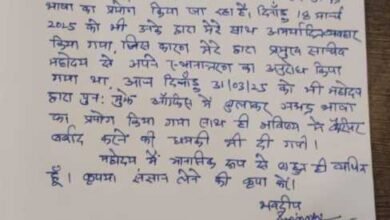 भाषा का प्रयोग किया जा रहा है, दिनाँक 18 मार्च
2025 को भी उनके द्वारा मेरे साथ अमर्यादित व्यवहार
किया गया, जिस कारण मेरे द्वारा प्रमुख सचिव
महोदय से अपने स्थानान्तरण का अनुरोध किया
गया था, आज दिनाँक 31/03/25 को भी महोदय
द्वारा पुनः मुझे ऑफिस में बुलाकर अभद्र भाषा
का प्रयोग किया गया साथ ही भविष्य में कैरियर
बर्बाद करने की धमकी भी दी गयी।
महोदय मैं मानसिक रूप से बहुत ही व्यथित
हूँ। कृपया संज्ञान लेने की कृपा करें।
भवदीय